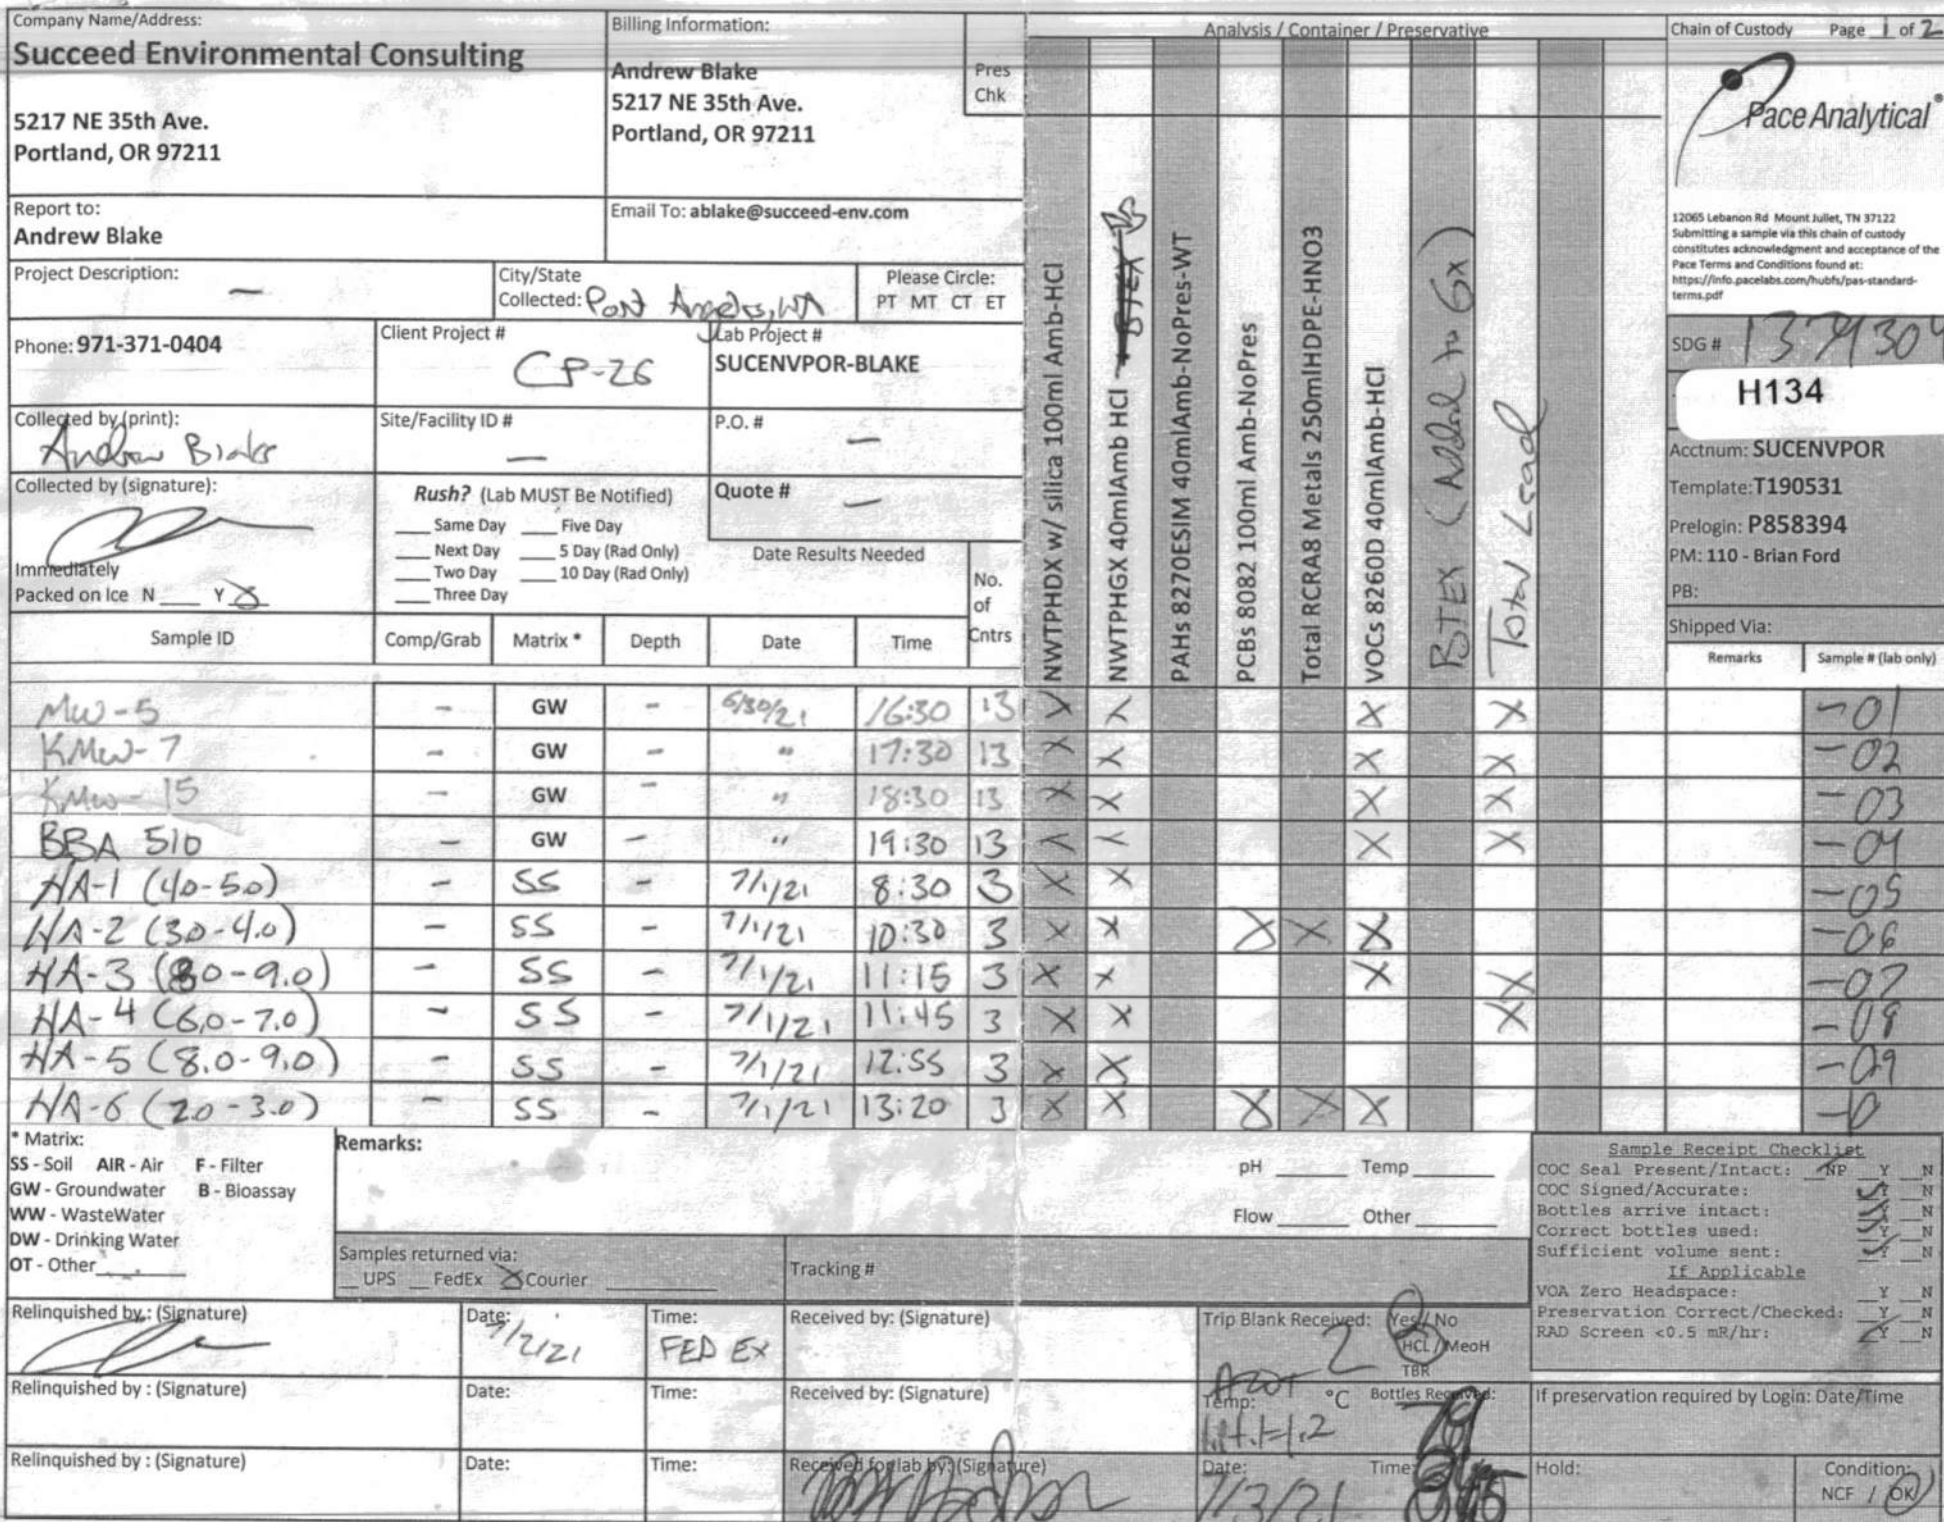 Company Name/Address:
Succeed Environmental Consulting
5217 NE 35th Ave.
Portland, OR 97211
Billing Information:
Andrew Blake
5217 NE 35th Ave.
Portland, OR 97211
Pres
Chk
Analysis / Container / Preservative
Chain of Custody Page 1 of 2
Pace Analytical®
12065 Lebanon Rd Mount Juliet, TN 37122
Submitting a sample via this chain of custody
constitutes acknowledgment and acceptance of the
Pace Terms and Conditions found at:
https://info.pacelabs.com/hubfs/pas-standard-
terms.pdf
Report to:
Andrew Blake
Email To: ablake@succeed-env.com
Project Description: —
City/State
Collected: Port Angeles, WA
Please Circle:
PT MT CT ET
Phone: 971-371-0404
Client Project #
CP-26
Lab Project #
SUCENVPOR-BLAKE
Collected by (print):
Andrew Blake
Site/Facility ID #
—
P.O. #
—
Collected by (signature):
Rush? (Lab MUST Be Notified)
Same Day Five Day
Next Day 5 Day (Rad Only)
Two Day 10 Day (Rad Only)
Three Day
Quote #
—
Date Results Needed
Immediately
Packed on Ice N Y X
No.
of
Cntrs
NWTPHDX w/ silica 100ml Amb-HCl
NWTPHGX 40mlAmb HCl + BTEX AB
PAHs 8270ESIM 40mlAmb-NoPres-WT
PCBs 8082 100ml Amb-NoPres
Total RCRA8 Metals 250mlHDPE-HNO3
VOCs 8260D 40mlAmb-HCl
BTEX (Added to Gx)
Total Lead
SDG #
H134
Acctnum: SUCENVPOR
Template: T190531
Prelogin: P858394
PM: 110 - Brian Ford
PB:
Shipped Via:
Sample ID Comp/Grab Matrix * Depth Date Time Remarks Sample # (lab only)
MW-5 - GW - 6/30/21 16:30 13 X X X X -01
KMW-7 - GW - " 17:30 13 X X X X -02
KMW-15 - GW - " 18:30 13 X X X X -03
BBA 510 - GW - " 19:30 13 X X X X -04
HA-1 (4.0-5.0) - SS - 7/1/21 8:30 3 X X -05
HA-2 (3.0-4.0) - SS - 7/1/21 10:30 3 X X X X X -06
HA-3 (8.0-9.0) - SS - 7/1/21 11:15 3 X X X X -07
HA-4 (6.0-7.0) - SS - 7/1/21 11:45 3 X X X -08
HA-5 (8.0-9.0) - SS - 7/1/21 12:55 3 X X -09
HA-6 (2.0-3.0) - SS - 7/1/21 13:20 3 X X X X X
* Matrix:
SS - Soil AIR - Air F - Filter
GW - Groundwater B - Bioassay
WW - WasteWater
DW - Drinking Water
OT - Other
Remarks:
pH Temp
Flow Other
Samples returned via:
UPS FedEx X Courier
Tracking #
Sample Receipt Checklist
COC Seal Present/Intact: NP Y N
COC Signed/Accurate: Y N
Bottles arrive intact: Y N
Correct bottles used: Y N
Sufficient volume sent: Y N
If Applicable
VOA Zero Headspace: Y N
Preservation Correct/Checked: Y N
RAD Screen <0.5 mR/hr: Y N
Relinquished by : (Signature)
Date: 7/2/21
Time: FED EX
Received by: (Signature)
Trip Blank Received: Yes / No
2 HCL / MeoH
TBR
Relinquished by : (Signature)
Date:
Time:
Received by: (Signature)
Temp: °C Bottles Received:
If preservation required by Login: Date/Time
Relinquished by : (Signature)
Date:
Time:
Received for lab by: (Signature)
Date: 7/3/21
Time:
Hold:
Condition:
NCF / OK